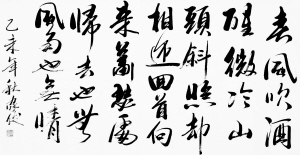 春風吹酒
醒微冷山
頭斜照却
相迎回首向
来蕭瑟處
歸去也無
風雨也無晴
乙未年秋